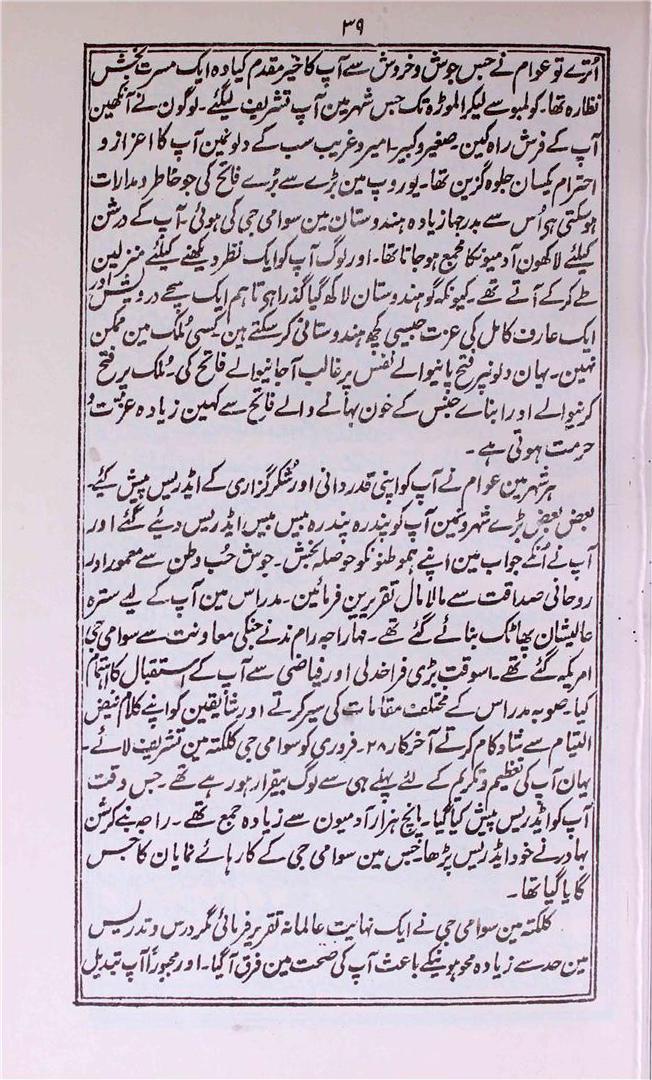 ۳۹
اُترے تو عوام نے جس جوش و خروش سے آپ کا خیر مقدم کیا وہ ایک مسرت بخش
نظارہ تھا۔ کولمبو سے لیکر الموڑہ تک جس شہر مین آپ تشریف لیگئے۔ لوگون نے آنکھین
آپ کے فرش راہ کین۔ صغیر و کبیر۔ امیر و غریب سب کے دلونمین آپ کا اعزاز و
احترام یکسان جلوہ گزین تھا۔ یوروپ مین بڑے سے بڑے فاتح کی جو خاطر و مدارات
ہو سکتی ہی اُس سے بدرجہا زیادہ ہندوستان مین سوامی جی کی ہوئی۔ آپ کے درشن
کیلئے لاکھون آدمیونکا مجمع ہو جاتا تھا۔ اور لوگ آپ کو ایک نظر دیکھنے کیلئے منزلین
طے کر کے آتے تھے۔ کیونکہ گو ہندوستان لاکھ گیا گذرا ہو تاہم ایک سچے درویش اور
ایک عارف کامل کی عزت جیسی کچھ ہندوستانی کر سکتے ہین۔ کسی مُلک مین ممکن
نہین۔ یہان دلونپر فتح پانیوالے نفس پر غالب آجانیوالے فاتح کی۔ مُلک پر فتح
کرنیوالے اور ابناے جنس کے خون بہانے والے فاتح سے کہین زیادہ عزت و
حرمت ہوتی ہے۔
ہر شہر مین عوام نے آپ کو اپنی قدر دانی اور شکر گزاری کے ایڈریس پیش کیے۔
بعض بعض بڑے شہرونمین آپ کو پندرہ پندرہ بیس بیس ایڈریس دیے گئے اور
آپ نے اُنکے جواب مین اپنے ہموطنونکو حوصلہ بخش۔ جوش حُب وطن سے معمور اور
روحانی صداقت سے مالا مال تقریرین فرمائین۔ مدراس مین آپ کے لیے سترہ
عالیشان پھاٹک بنائے گئے تھے۔ مہاراجہ رام ند نے جنکی معاونت سے سوامی جی
امریکہ گئے تھے۔ اسوقت بڑی فراخدلی اور فیاضی سے آپ کے استقبال کا اہتمام
کیا۔ صوبہ مدراس کے مختلف مقامات کی سیر کرتے اور شایقین کو اپنے کلام فیض
التیام سے شاد کام کرتے آخر کار ۲۸۔ فروری کو سوامی جی کلکتہ مین تشریف لائے۔
یہان آپ کی تعظیم و تکریم کے لئے پہلے ہی سے لوگ بیقرار ہو رہے تھے۔ جس وقت
آپ کو ایڈریس پیش کیا گیا۔ پانچ ہزار آدمیون سے زیادہ جمع تھے۔ راجہ بنے کرشن
بہادر نے خود ایڈریس پڑھا۔ جس مین سوامی جی کے کارہائے نمایان کا جس
گایا گیا تھا۔
کلکتہ مین سوامی جی نے ایک نہایت عالمانہ تقریر فرمائی مگر درس و تدریس
مین حد سے زیادہ محو ہونیکے باعث آپ کی صحت مین فرق آگیا۔ اور مجبوراً آپ تبدیل